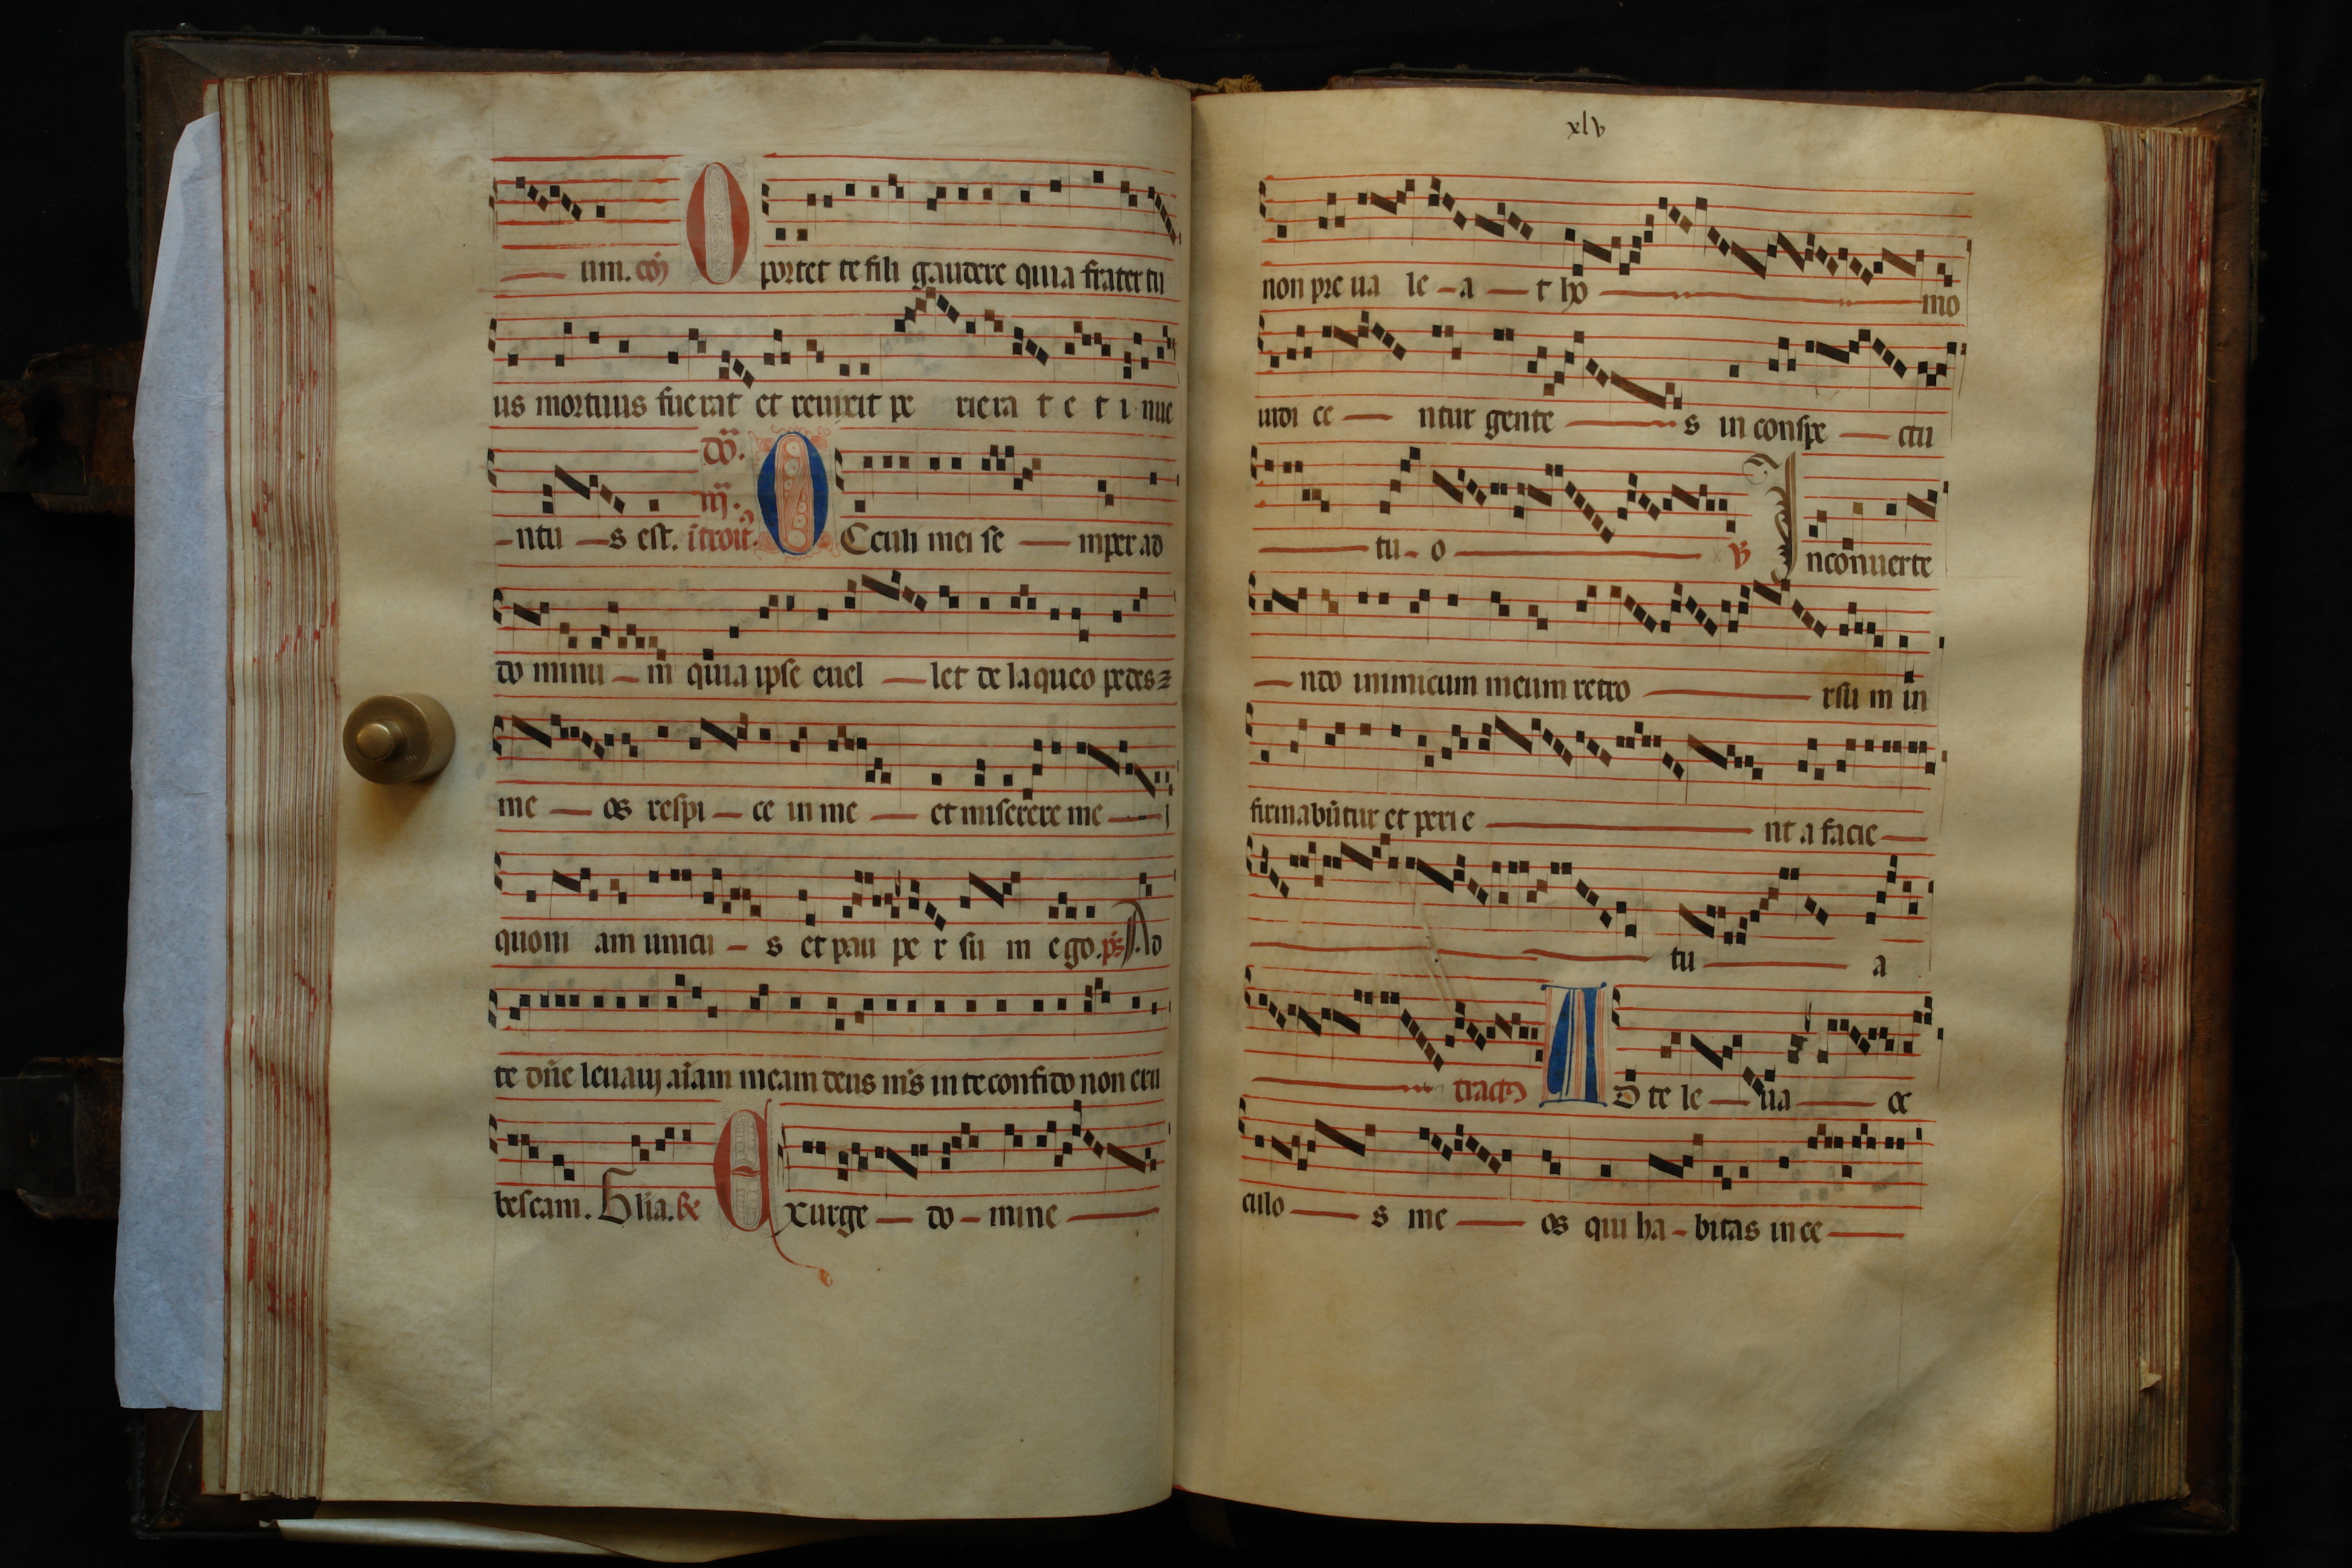 um. cõ Oportet te fili gaudere quia frater tu
us mortuus fuerat et reuixit pe rierat et i nue
ntu s est. dõ. iij. ĩtroit̃. OCculi mei se mper ad
do minu m quia ipse euel let de laqueo pedes
me os respi ce in me et miserere me
quoni am unicu s et pau pe r su m ego. ps̃. Ad
te dñe leuaui aĩam meam deus m̃s in te confido non eru
bescam. Glia. Exurge do mine
xlv
non pre ua le a t ho mo
iudi ce ntur gente s in conspe ctu
tu o ℣ Inconuerte
ndo inimicum meum retro rsu m in
firmabũtur et perie nt a facie
tu a
tract9 AD te le ua oc
culo s me os qui ha bitas in ce